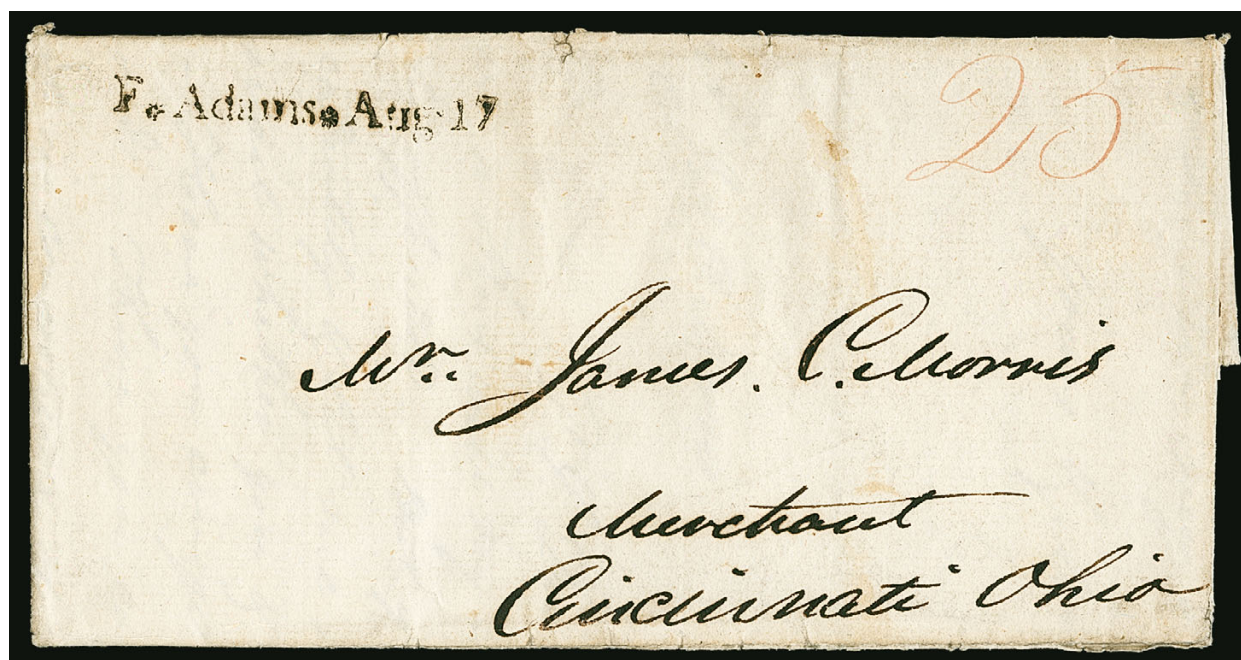 F. Adams. Aug. 17
25
Mr. James. C. Morris
Merchant
Cincinnati Ohio